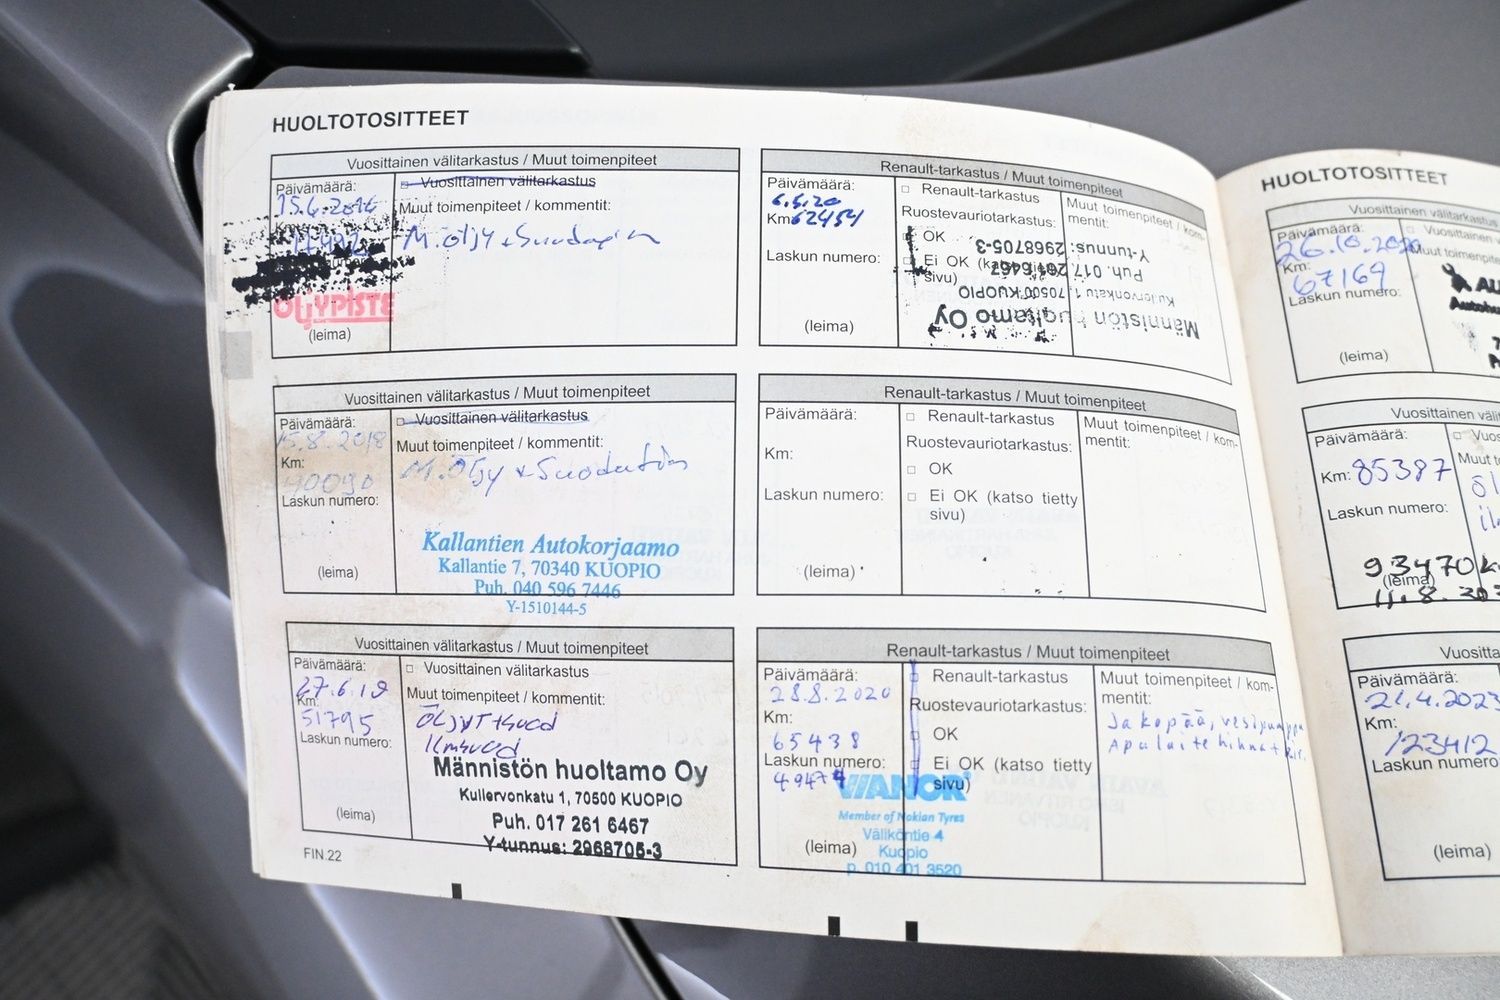 HUOLTOTOSITTEET
Vuosittainen välitarkastus / Muut toimenpiteet
Päivämäärä:
□ Vuosittainen välitarkastus
15.6.2016
Muut toimenpiteet / kommentit:
M. öljy +
ÖLJYPISTE
(leima)
Vuosittainen välitarkastus / Muut toimenpiteet
Päivämäärä:
□ Vuosittainen välitarkastus
15.8.2018
Muut toimenpiteet / kommentit:
Km:
M. Öljy + Suodatin
90090
Laskun numero:
Kallantien Autokorjaamo
Kallantie 7, 70340 KUOPIO
Puh. 040 596 7446
Y-1510144-5
(leima)
Vuosittainen välitarkastus / Muut toimenpiteet
Päivämäärä:
□ Vuosittainen välitarkastus
27.6.19
Muut toimenpiteet / kommentit:
Km:
51795
Laskun numero:
Männistön huoltamo Oy
Kullervonkatu 1, 70500 KUOPIO
Puh. 017 261 6467
Y-tunnus: 2968705-3
(leima)
FIN.22
Renault-tarkastus / Muut toimenpiteet
Päivämäärä:
□ Renault-tarkastus
Muut toimenpiteet / kommentit:
6.5.20
Km: 62454
Ruostevauriotarkastus:
□ OK
Laskun numero:
□ Ei OK (katso tietty sivu)
Männistön huoltamo Oy
Kullervonkatu 1, 70500 KUOPIO
Puh. 017 261 6467
Y-tunnus: 2968705-3
(leima)
Renault-tarkastus / Muut toimenpiteet
Päivämäärä:
□ Renault-tarkastus
Muut toimenpiteet / kommentit:
Km:
Ruostevauriotarkastus:
□ OK
Laskun numero:
□ Ei OK (katso tietty sivu)
(leima)
Renault-tarkastus / Muut toimenpiteet
Päivämäärä:
□ Renault-tarkastus
Muut toimenpiteet / kommentit:
28.8.2020
Km:
Ruostevauriotarkastus:
65438
□ OK
Jakopää, vesipumppu
Apulaitehihna +
Laskun numero:
□ Ei OK (katso tietty sivu)
49474
VIANOR
Member of Nokian Tyres
Väliköntie 4
Kuopio
p. 010 401 3520
(leima)
HUOLTOTOSITTEET
Vuosittainen välitarkastus
Päivämäärä:
□ Vuosittainen
26.10.2020
Muut toimenpiteet
Km:
67169
Laskun numero:
(leima)
Vuosittainen
Päivämäärä:
Km: 85387
Laskun numero:
93470
(leima)
11.8.
Päivämäärä:
21.4.2023
Km:
123412
Laskun numero
(leima)